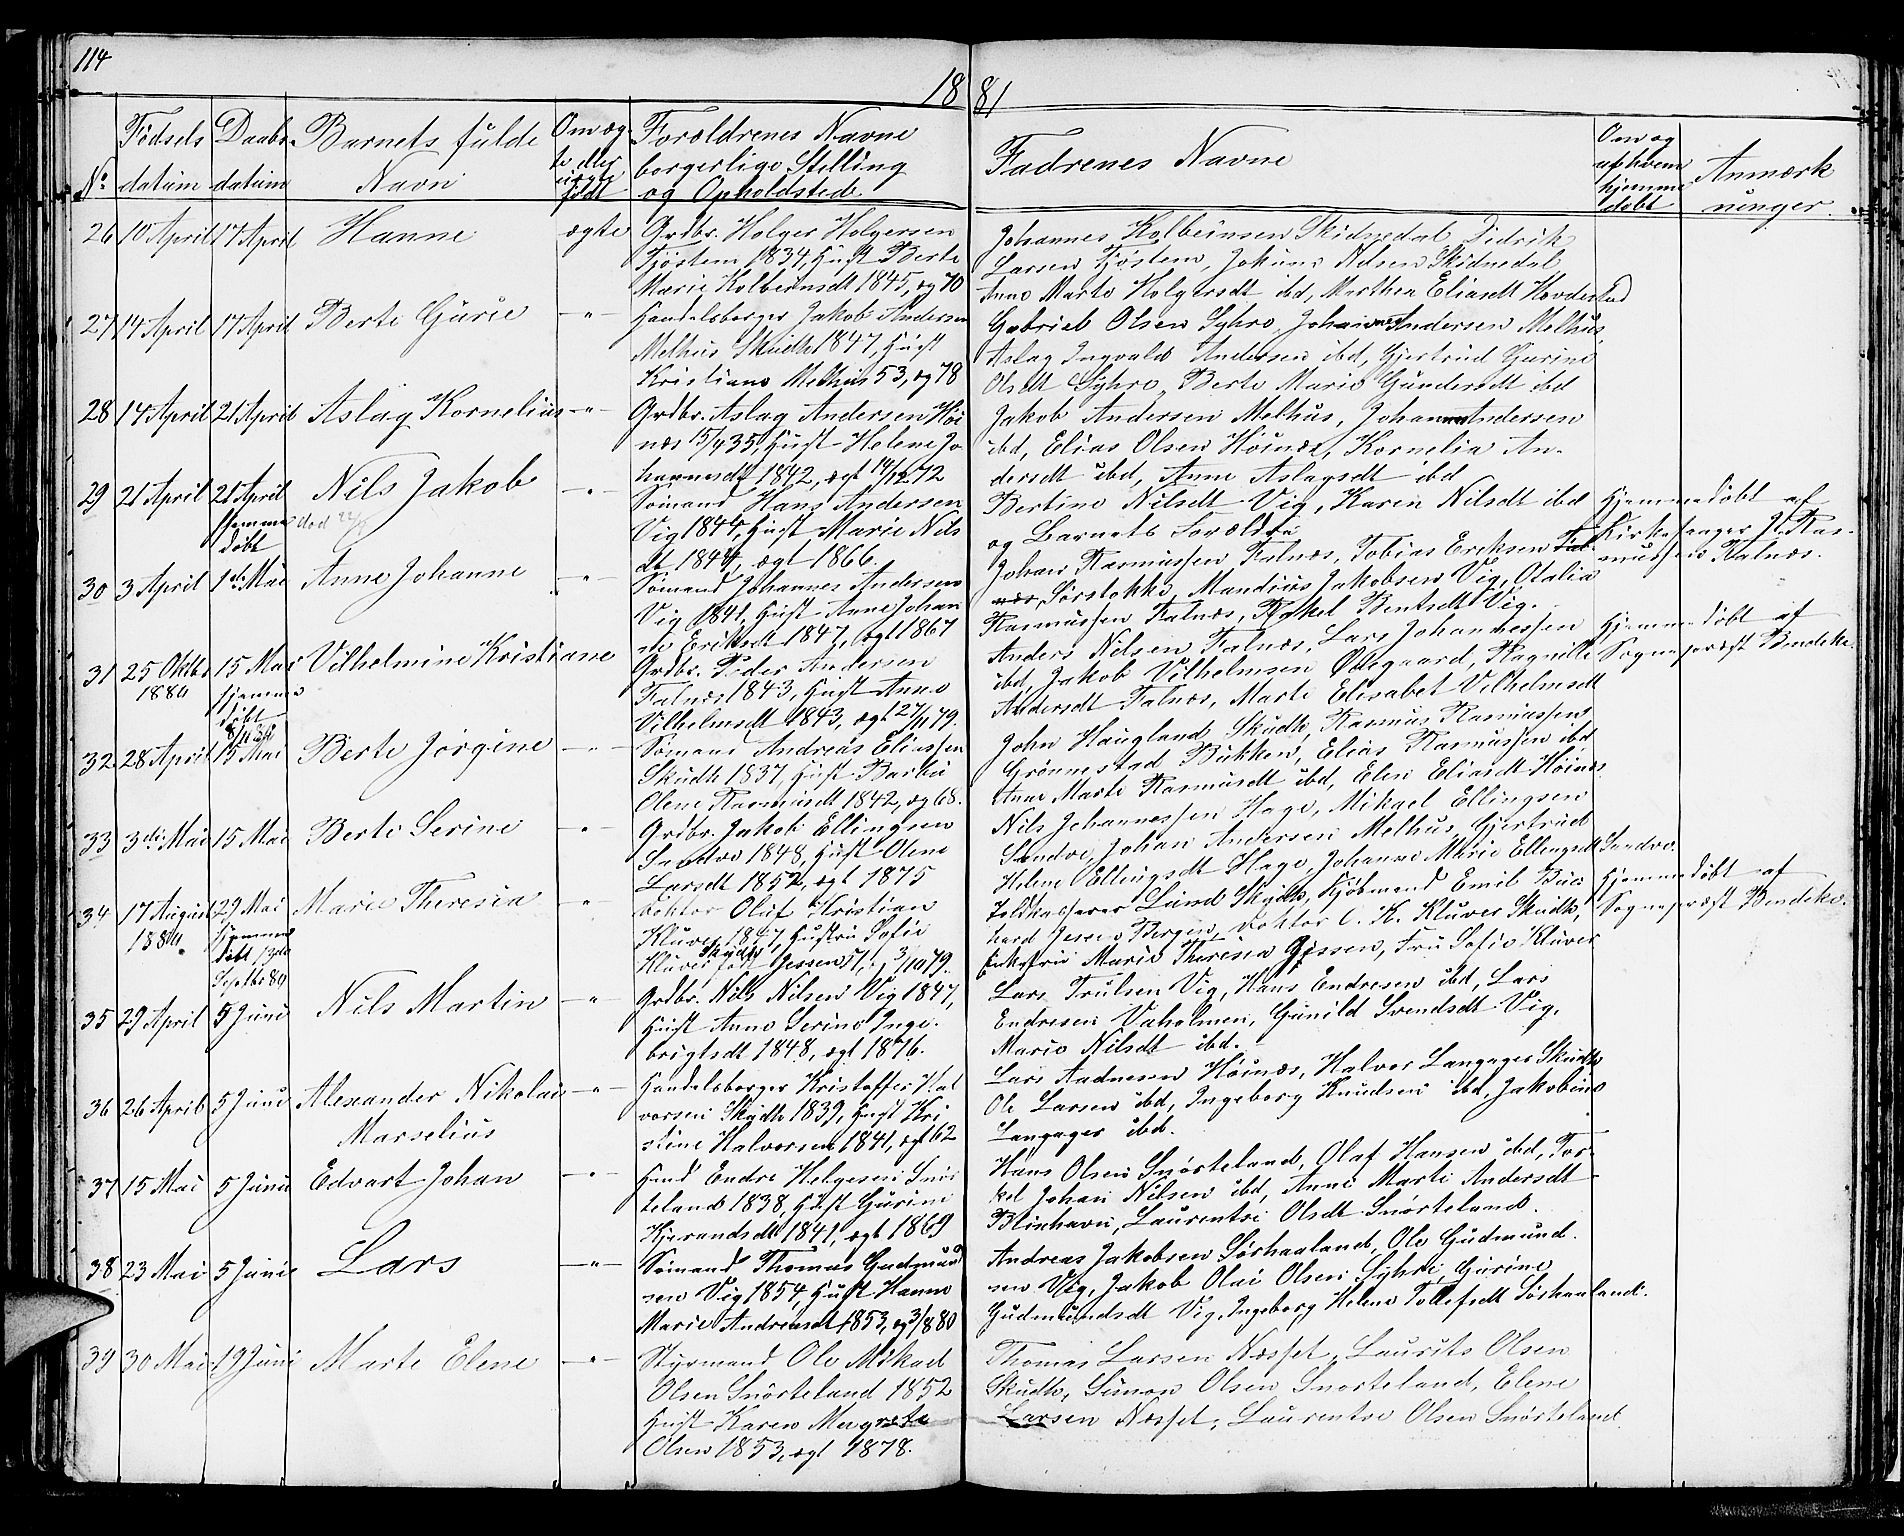 114
18 81
No
Fødsels datum
Daabs datum
Barnets fulde Navn
Om ægte eller uægte født
Forældrenes Navne borgerlige Stilling og Opholdsted.
Fadrenes Navne
Om og af hvem hjemme døbt
Anmærkninger.
26 10 April 17 April Hanne ægte Grdbr. Holger Holgersen
Tjøstem 1834, Hust Berte
Marie Kolbeinsdt 1845, æg 70
Johannes Kolbeinsen Skidnedal, Didrik
Larsen Tjøstem, Jokum Nilsen Skidnedal
Anne Marte Holgersdt ibd, Marthea Eliasdt Hovdestad
27 14 April 17 April Berte Gurie -"- Handelsborger Jakob Andersen
Melhus Skudh 1847, Hust
Kristiane Melhus 53, æg 78
Gabriel Olsen Syhre, Johannes Andersen Melhus,
Aslag Ingvald Andersen ibd, Gjertrud Gurine
Olsdt Syhre, Berte Marie Gundersdt ibd
28 14 April 21 April Aslag Kornelius -"- Grdbr. Aslag Andersen Høi
næs 15/4 35, Hust Helene Jo
hannesdt 1842, ægt 14/12 72
Jakob Andersen Melhus, Johannes Andersen
ibd, Elias Olsen Høinæs, Kornelia An-
dersdt ibd, Anne Aslagsdt ibd
29 21 April 21 April Nils Jakob -"- Sømand Hans Andersen
hjemme døbt
død
Vig 1844, Hust Marie Nils
dt 1844, ægt 1866.
Bertine Nilsdt Vig, Karen Nilsdt ibd
og Barnets Forældre
Hjemmedøbt af
Kirkesanger J. Ras-
mussen Falnæs.
30 3 April 1ste Mai Anne Johanne -"- Sømand Johannes Andersen
Vig 1841, Hust Anne Johan
ne Eriksdt 1847, ægt 1867
Johan Rasmussen Falnæs, Tobias Eriksen Fal
næs Sørstokke, Mandrius Jakobsen Vig, Otalia
Rasmussen Falnæs, Rakel Bentsdt Vig.
31 25 Oktbr 1880 15 Mai Vilhelmine Kristiane
hjemme døbt
Grdbr. Peder Andersen
Falnæs 1843, Hust Anne
Vilhelmsdt 1843, ægt 27/11 79.
Anders Nilsen Falnæs, Lars Johannessen
ibd, Jakob Vilhelmsen Ødegaard, Ragnille
Andersdt Falnæs, Marte Elisabet Vilhelmsdt
Hjemmedøbt af
Sogneprest Bendeke.
32. 28 April 15 Mai Berte Jørgine -"- Sømand Andreas Eliassen
Skudh 1837, Hust Barbu
Olene Rasmusdt 1842, æg 68.
John Haugland Skudh, Rasmus Rasmussen
Grønnestad Bukken, Elias Rasmussen ibd
Anne Marte Rasmusdt ibd, Elen Eliasdt Høinæs
33 3die Mai 15 Mai Berte Serine -"- Grdbr. Jakob Ellingsen
Sandve 1848, Hust Olene
Larsdt 1852, ægt 1875
Nils Johannessen Hage, Mikael Ellingsen
Sandve, Johan Andersen Melhus, Gjertrud
Helene Ellingsdt Hage, Johanne Marie Ellingsdt Sandve.
34 17 August 1880. 29 Mai Marie Theresia -"- Doktor Oluf Kristian
hjemme døbt 13de Septbr 80
Kluver 1847, Hustru Sofie
Kluver født Jessen 51, 3/10 79.
Toldkasserer Lund Skudh, Kjøbmand Emil Bus
hard Jessen Bergen, Doktor C. K. Kluver Skudh,
Enkefru Marie Theresia Jessen, Fru Sofie Kluver
Hjemmedøbt af
Sogneprest Bendeke.
35 29 April 5 Juni Nils Martin -"- Grdbr. Nils Nilsen Vig 1847,
Hust Anne Serine Inge-
brigtsdt 1848, ægt 1876.
Lars Trulsen Vig, Hans Endresen ibd, Lars
Endresen Vaholmen, Gunild Svendsdt Vig,
Marie Nilsdt ibd.
36 26 April 5 Juni Alexander Nikolai Marselius -"- Handelsborger Kristoffer Hal
vorsen Skudh 1839, Hust Kri
stine Halvorsen 1841, ægt 62
Lars Aadnesen Høinæs, Halvor Langager Skudh
Ole Larsen ibd, Ingeborg Knudsen ibd, Jakobine
Langager ibd.
37 15 Mai 5 Juni Edvart Johan -"- Hmd Endre Helgesen Snør
teland 1838, Hust Gurine
Kjerandsdt 1841, ægt 1869
Hans Olsen Snørteland, Olaf Hansen ibd, Tor-
kel Johan Nilsen ibd, Anne Marte Andersdt
Blinhavn, Laurentse Olsdt Snørteland.
38 23 Mai 5 Juni Lars -"- Sømand Thomas Gudmund
sen Vig 1854, Hust Hanne
Marie Andreasdt 1853, æg 3/8 80
Andreas Jakobsen Sørhaaland, Ole Gudmund-
sen Vig, Jakob Olai Olsen Syhre, Gurine
Gudmundsdt Vig, Ingeborg Helene Tollefsdt Sørhaaland.
39 30 Mai 19 Juni Marte Elene -"- Styrmand Ole Mikael
Olsen Snørteland 1852
Hust Karen Margrete
Olsen 1853, ægt 1878.
Thomas Larsen Næsset, Laurits Olsen
Skudh, Simon Olsen Snørteland, Elene
Larsen Næsset, Laurentse Olsen Snørteland.